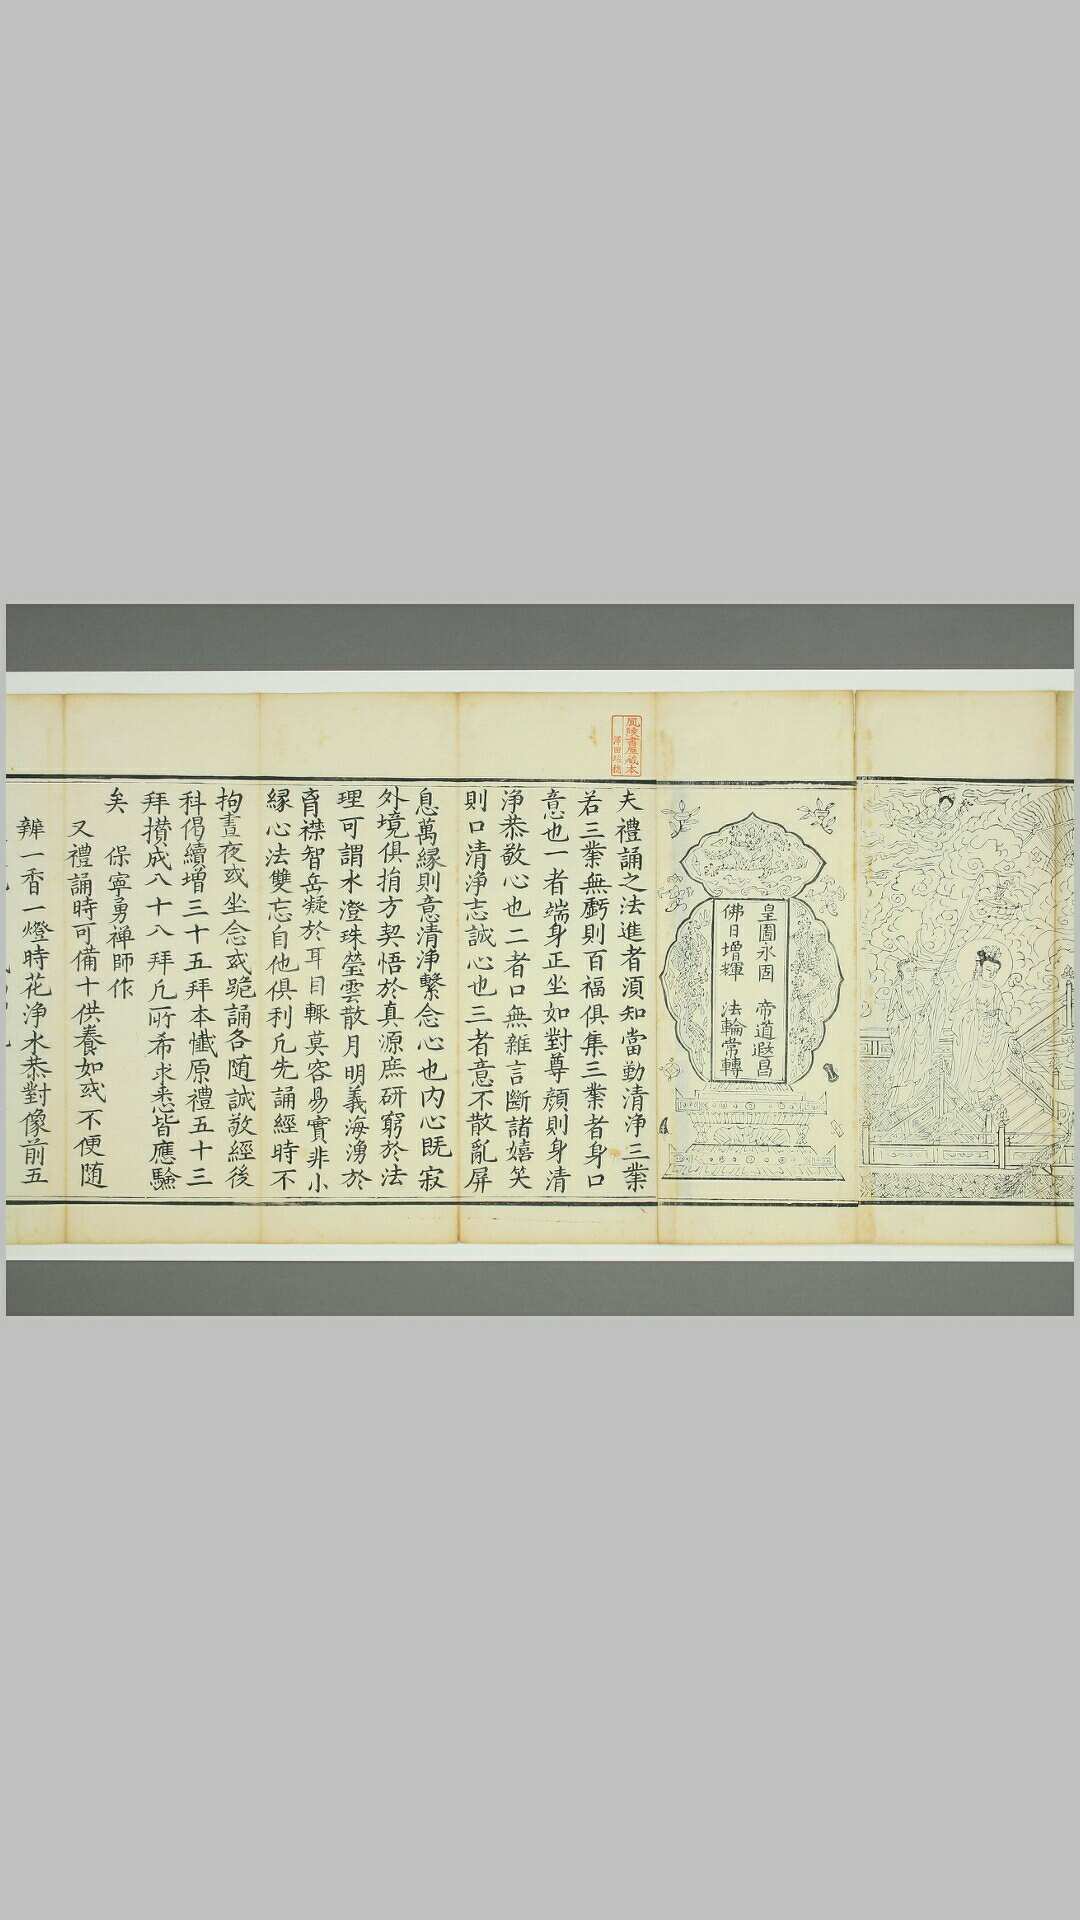 皇圖永固　帝道遐昌
佛日增輝　法輪常轉
鳳陵書庫藏本
夫禮誦之法進者須知當勤清淨三業
若三業無虧則百福俱集三業者身口
意也一者端身正坐如對尊顔則身清
淨恭敬心也二者口無雜言斷諸嬉笑
則口清淨志誠心也三者意不散亂屏
息萬緣則意清淨繫念心也内心既寂
外境俱捐方契悟於真源庶研窮於法
理可謂水澄珠瑩雲散月明義海湧於
胷襟智岳凝於耳目輙莫容易實非小
緣心法雙忘自他俱利凢先誦經時不
拘晝夜或坐念或跪誦各随誠敬經後
科偈續增三十五拜本懺原禮五十三
拜攅成八十八拜凢所希求悉皆應驗
矣　保寧勇禅師作
又禮誦時可備十供養如或不便随
辦一香一燈時花淨水恭對像前五